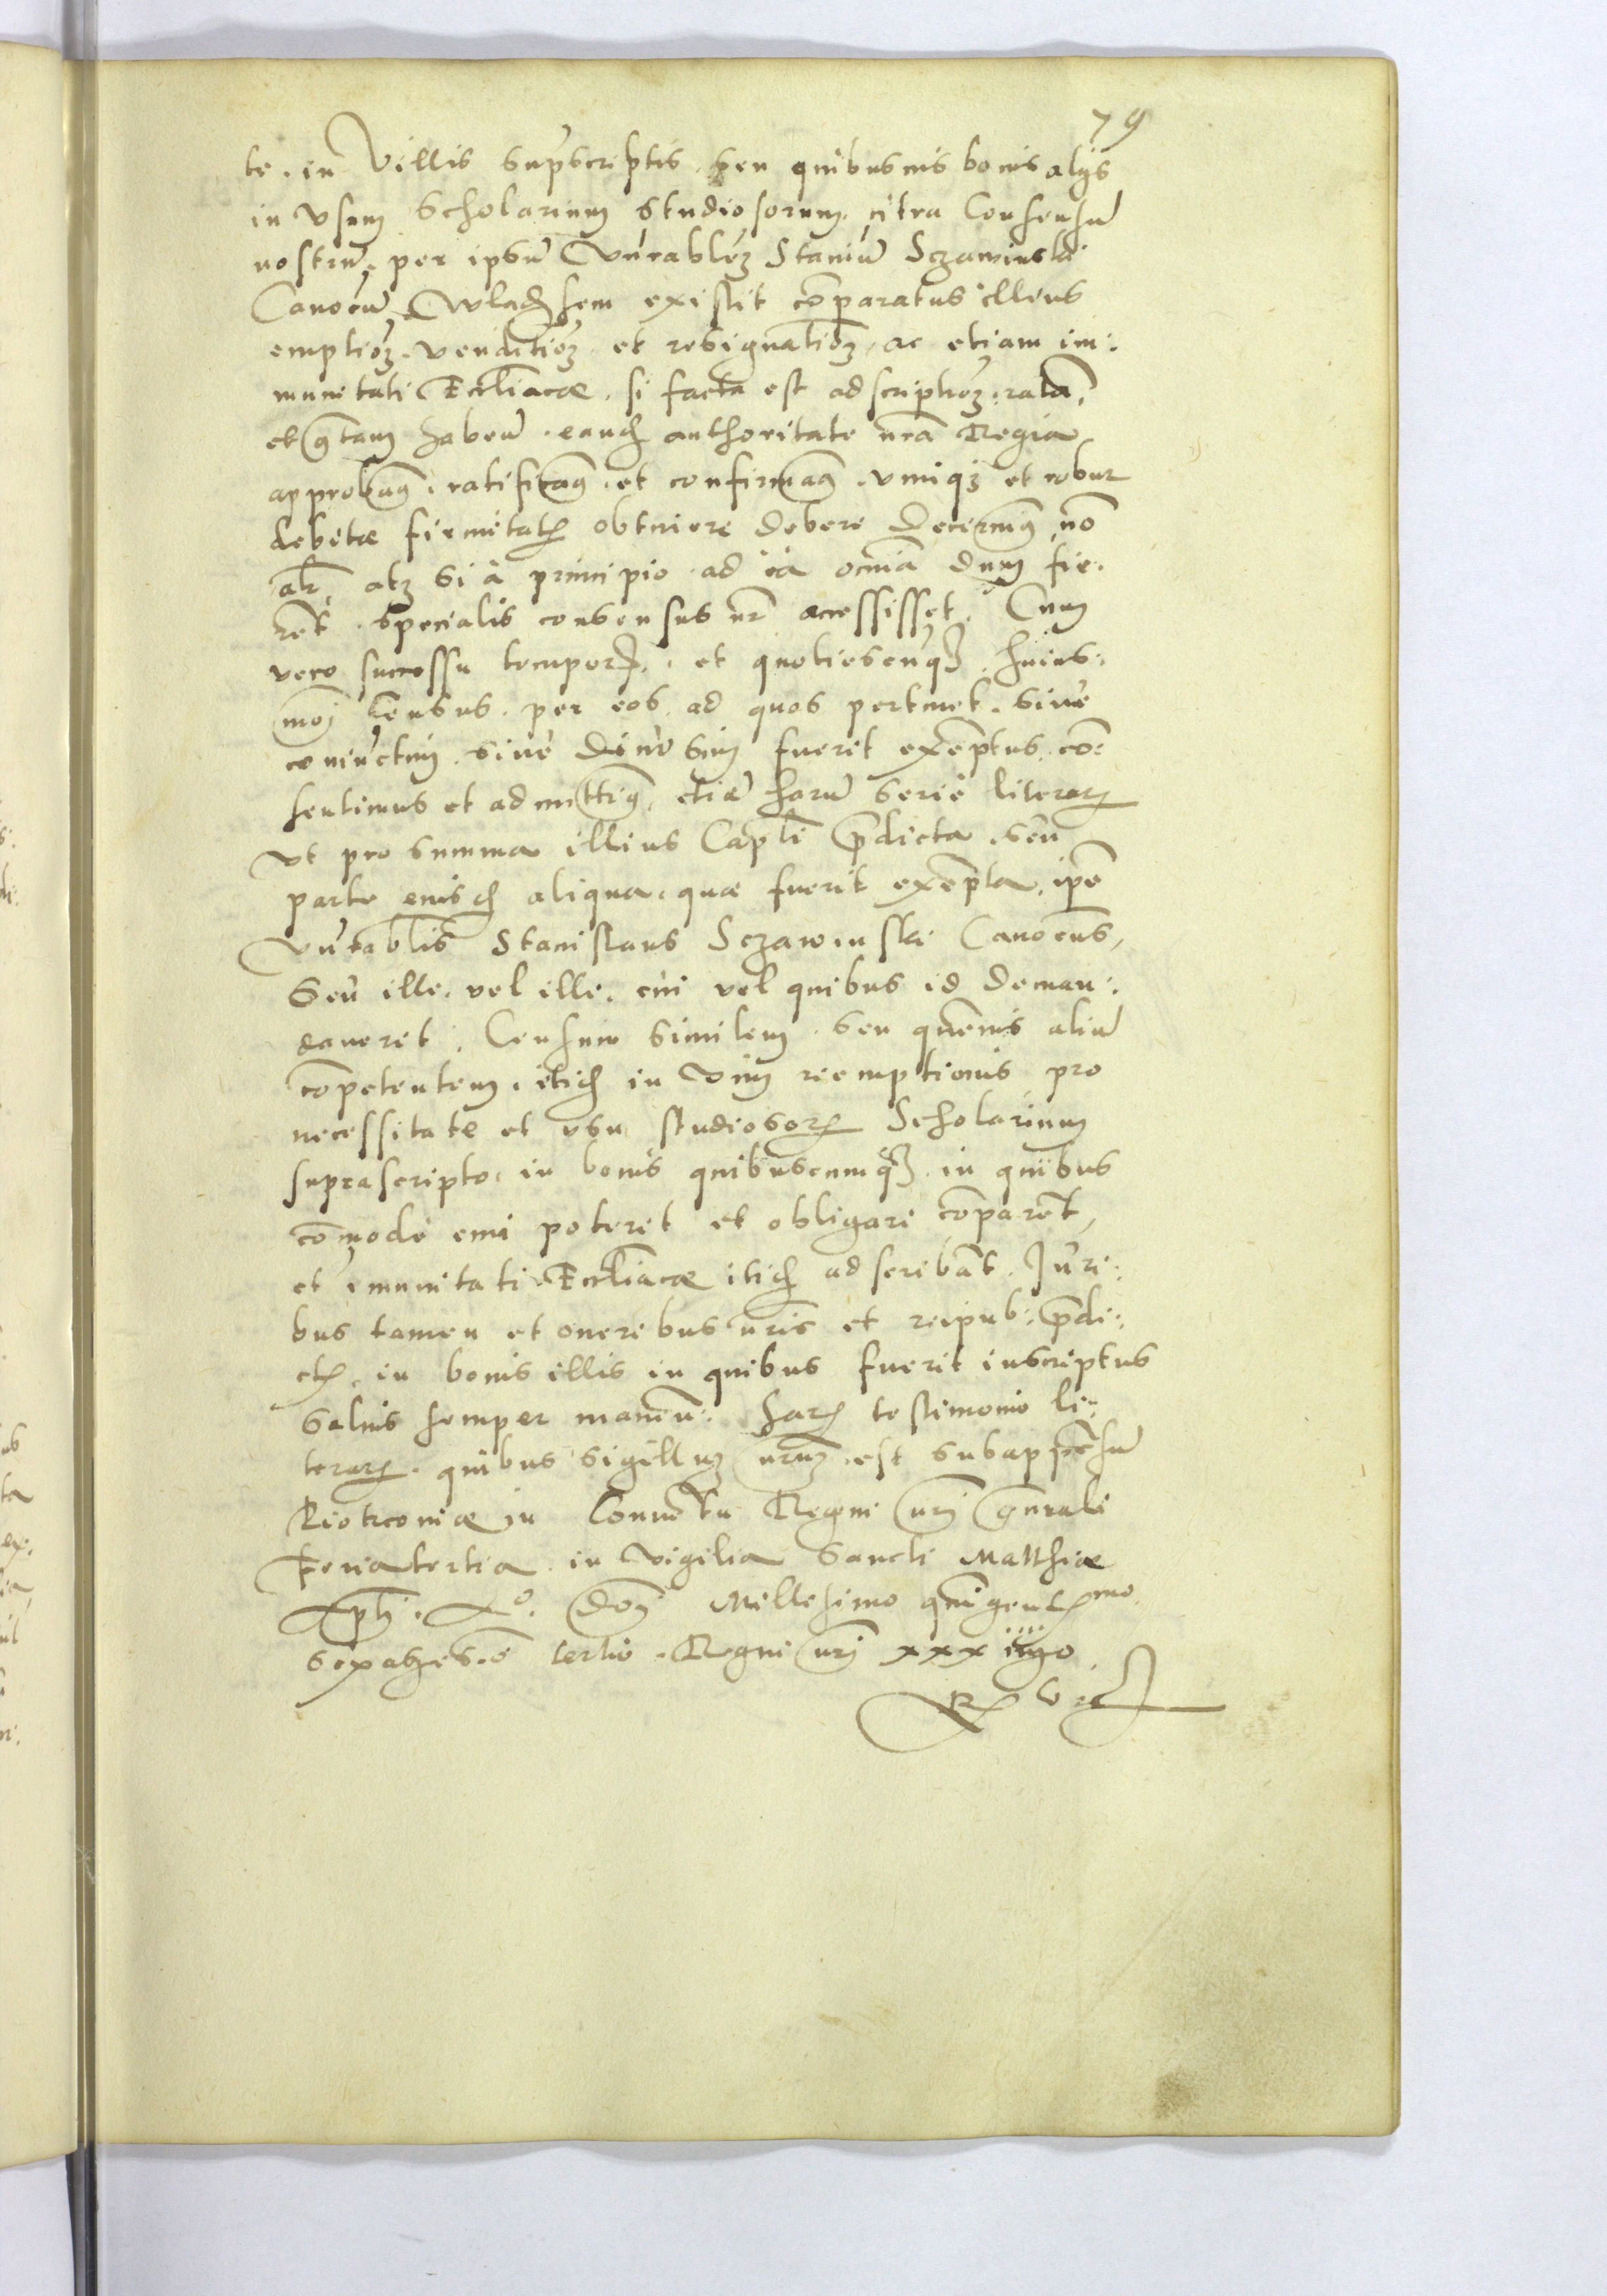 79
te. in Villis supscriptis seu quibusuis bonis alijs
in Vsum Scholarium studiosorum citra Consensū
nostrū, per ipsū Vnrablem Stanīū Sczawinski
Canocū Wladsem existit cōparatus illius
emptiōem, venditiōem et resignatiōem, ac etiam im:
munitati Eccliacæ, si facta est adscriptiōem, ratā,
et gratam habentes, eandem authoritate nrā Regia
approbamus, ratificamus, et confirmamus, vimque et robur
debitæ firmitatis obtinere debere Decernimus, nō
alr, atque si à principio ad ea omnia dum fie:
rēt specialis consensus nr accessisset. Cum
vero successu temporis, et quotiescunque huius:
modi Census per eos ad quos pertinet, siue
coniūctim, siue Diuisim fuerit exēptus, cō:
sentimus et admittimus, etiā harū serie literarum
vt pro summa illius Capli prædicta, seu
parte eiusdem aliqua, quæ fuerit exēpta, ipē
Vnrablis Stanislaus Sczawinski Canocus,
seu ille, vel illi, cui vel quibus id deman:
dauerit, Censum similem, seu quēuis aliū
cōpetentem, itidem in Vim reemptionis pro
necessitate et vsu studiosorum Scholarium
suprascripto, in bonis quibuscumque, in quibus
cōmode emi poterit et obligari cōparēt,
et imunitati Eccliacæ itidem adscribāt. Juri:
bus tamen et oneribus nris et reipub: prædi:
ctis, in bonis illis in quibus fuerit inscriptus
saluis semper manen: Harum testimonio li:
terarum, quibus sigillum nrum est subappēsū
Piotrcouiæ in Conuētu Regni nri gnrali
feria tertia in vigilia Sancti Matthiæ
Apli. Ao. Dni Millesimo quingentesimo
sexages.o tertio. Regni nri xxxiiijo